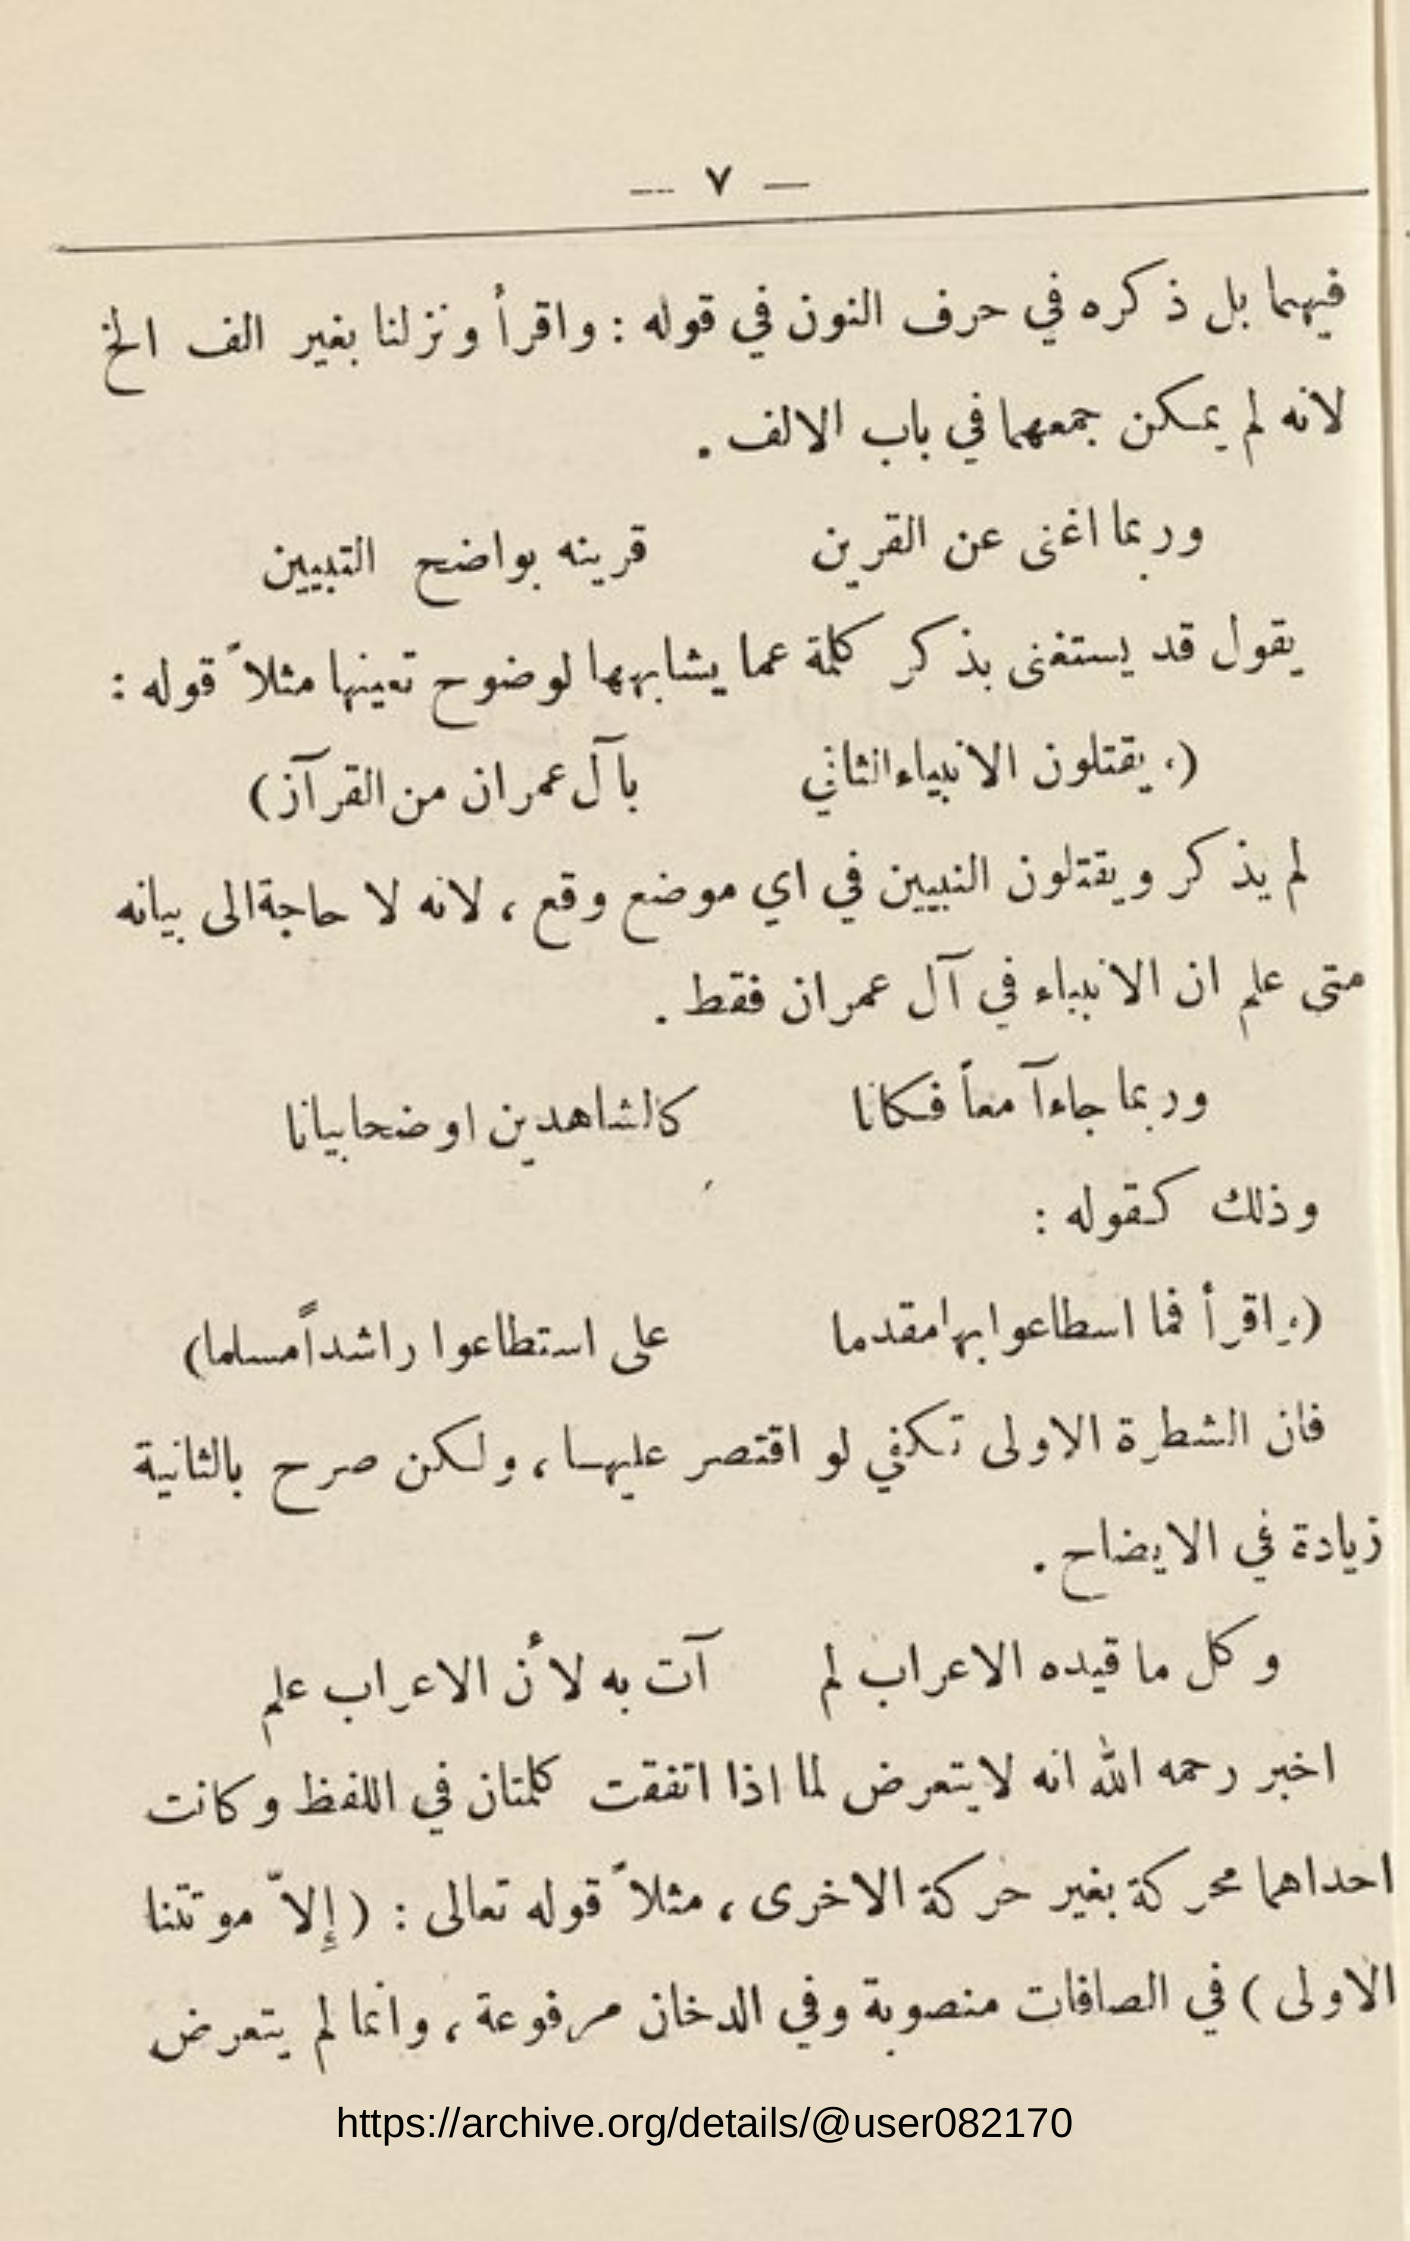 — ٧ —
فيهما بل ذكره في حرف النون في قوله : واقرأ ونزلنا بغير الف الخ
لانه لم يمكن جمعهما في باب الالف .
وربما اغنى عن القرين قرينه بواضح التبيين
يقول قد يستغنى بذكر كلمة عما يشابهها لوضوح تعينها مثلاً قوله :
(ويقتلون الانبياء الثاني بآل عمران من القرآن)
لم يذكر ويقتلون النبيين في اي موضع وقع ، لانه لا حاجة الى بيانه
متى علم ان الانبياء في آل عمران فقط .
وربما جاءآ معاً فكانا كالشاهدين اوضحا بيانا
وذلك كقوله :
(واقرأ فما اسطاعوا بها مقدما على استطاعوا راشداً مسلما)
فان الشطرة الاولى تكفي لو اقتصر عليها ، ولكن صرح بالثانية
زيادة في الايضاح .
وكل ما قيده الاعراب لم آت به لأن الاعراب علم
اخبر رحمه الله انه لا يتعرض لما اذا اتفقت كلمتان في اللفظ وكانت
احداهما محركة بغير حركة الاخرى ، مثلاً قوله تعالى : ( إلاّ موتتنا
الاولى ) في الصافات منصوبة وفي الدخان مرفوعة ، وانما لم يتعرض
https://archive.org/details/@user082170